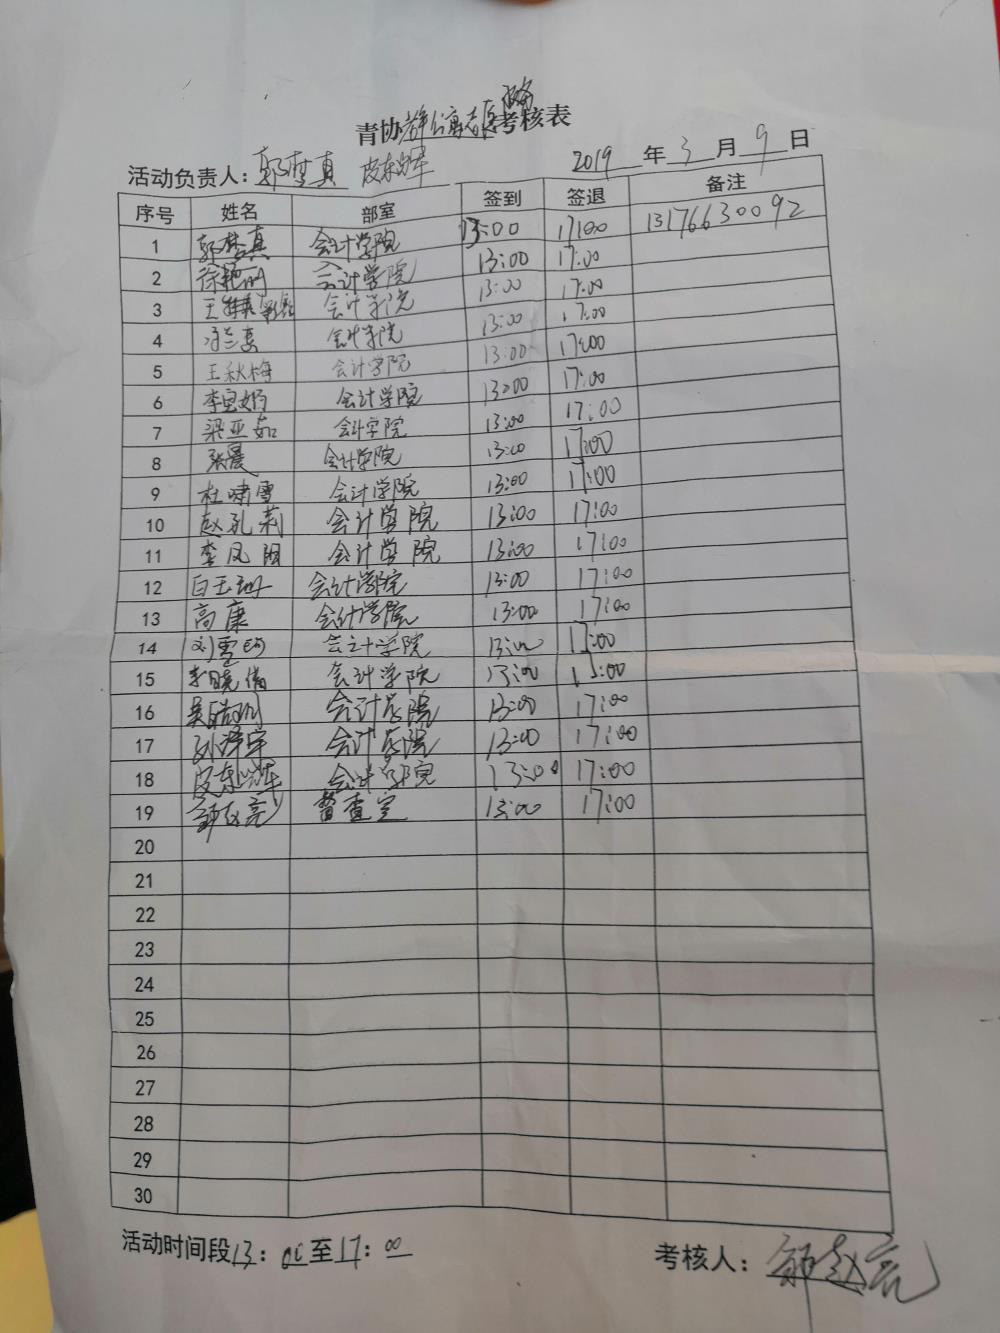 青协 公寓志愿服务考核表
活动负责人：郭梦真 皮东晖 2019年3月9日
序号 姓名 部室 签到 签退 备注
1 郭梦真 会计学院 13:00 17:00 13176630092
2 徐艳 会计学院 13:00 17:00
3 王 会计学院 13:00 17:00
4 会计学院 13:00 17:00
5 王秋梅 会计学院 13:00 17:00
6 李 会计学院 13:00 17:00
7 梁亚茹 会计学院 13:00 17:00
8 张晨 会计学院 13:00 17:00
9 杜啸雪 会计学院 13:00 17:00
10 赵孔莉 会计学院 13:00 17:00
11 李凤阳 会计学院 13:00 17:00
12 白玉 会计学院 13:00 17:00
13 高康 会计学院 13:00 17:00
14 刘雪 会计学院 13:00 17:00
15 李晓倩 会计学院 13:00 17:00
16 吴 会计学院 13:00 17:00
17 孙泽宇 会计学院 13:00 17:00
18 皮东晖 会计学院 13:00 17:00
19 邹赵亮 督查室 13:00 17:00
20
21
22
23
24
25
26
27
28
29
30
活动时间段13：00至17：00 考核人：邹赵亮